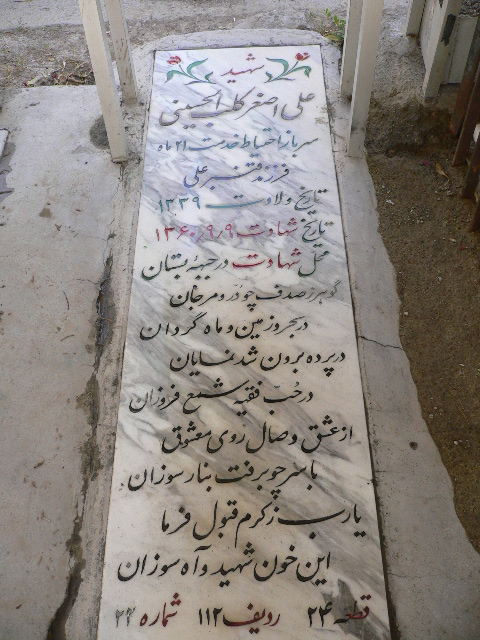 شهید
علی اصغر کلب الحسینی
سرباز احتیاط خدمت ۲۱ ماه
فرزند قنبر علی
تاریخ ولادت ۱۳۳۹
تاریخ شهادت ۱۳۶۰/۹/۹
محل شهادت در جبهه بستان
گوهر ز صدف چو در و مرجان
در بحر و زمین و ماه گردان
در پرده برون شد نمایان
در حب فقیه شیع فروزان
از عشق وصال روی معشوق
با سر چو برفت بنار سوزان
یارب ز کرم قبول فرما
این خون شهید و آه سوزان
قطعه ۲۴ ردیف ۱۱۲ شماره ۲۲